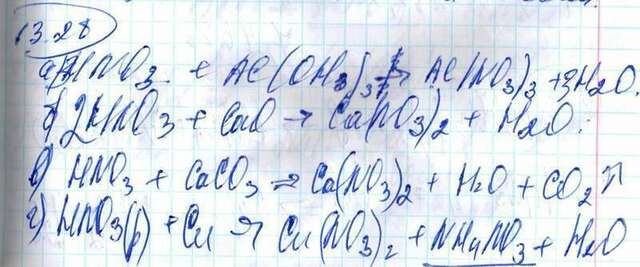 13.28
а) 3HNO3 + Al(OH)3 → Al(NO3)3 + 3H2O.
б) 2HNO3 + CaO → Ca(NO3)2 + H2O.
в) HNO3 + CaCO3 = Ca(NO3)2 + H2O + CO2↑
г) HNO3(р) + Cu → Cu(NO3)2 + NH4NO3 + H2O